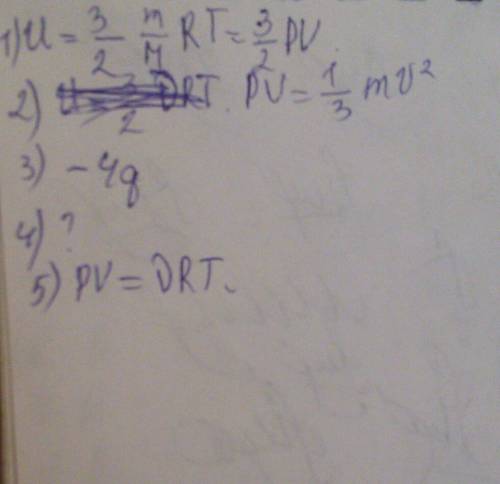 1) U = 3/2 m/M RT = 3/2 PV.
2) PV = 1/3 mv²
3) -4q
4) ?
5) PV = νRT.